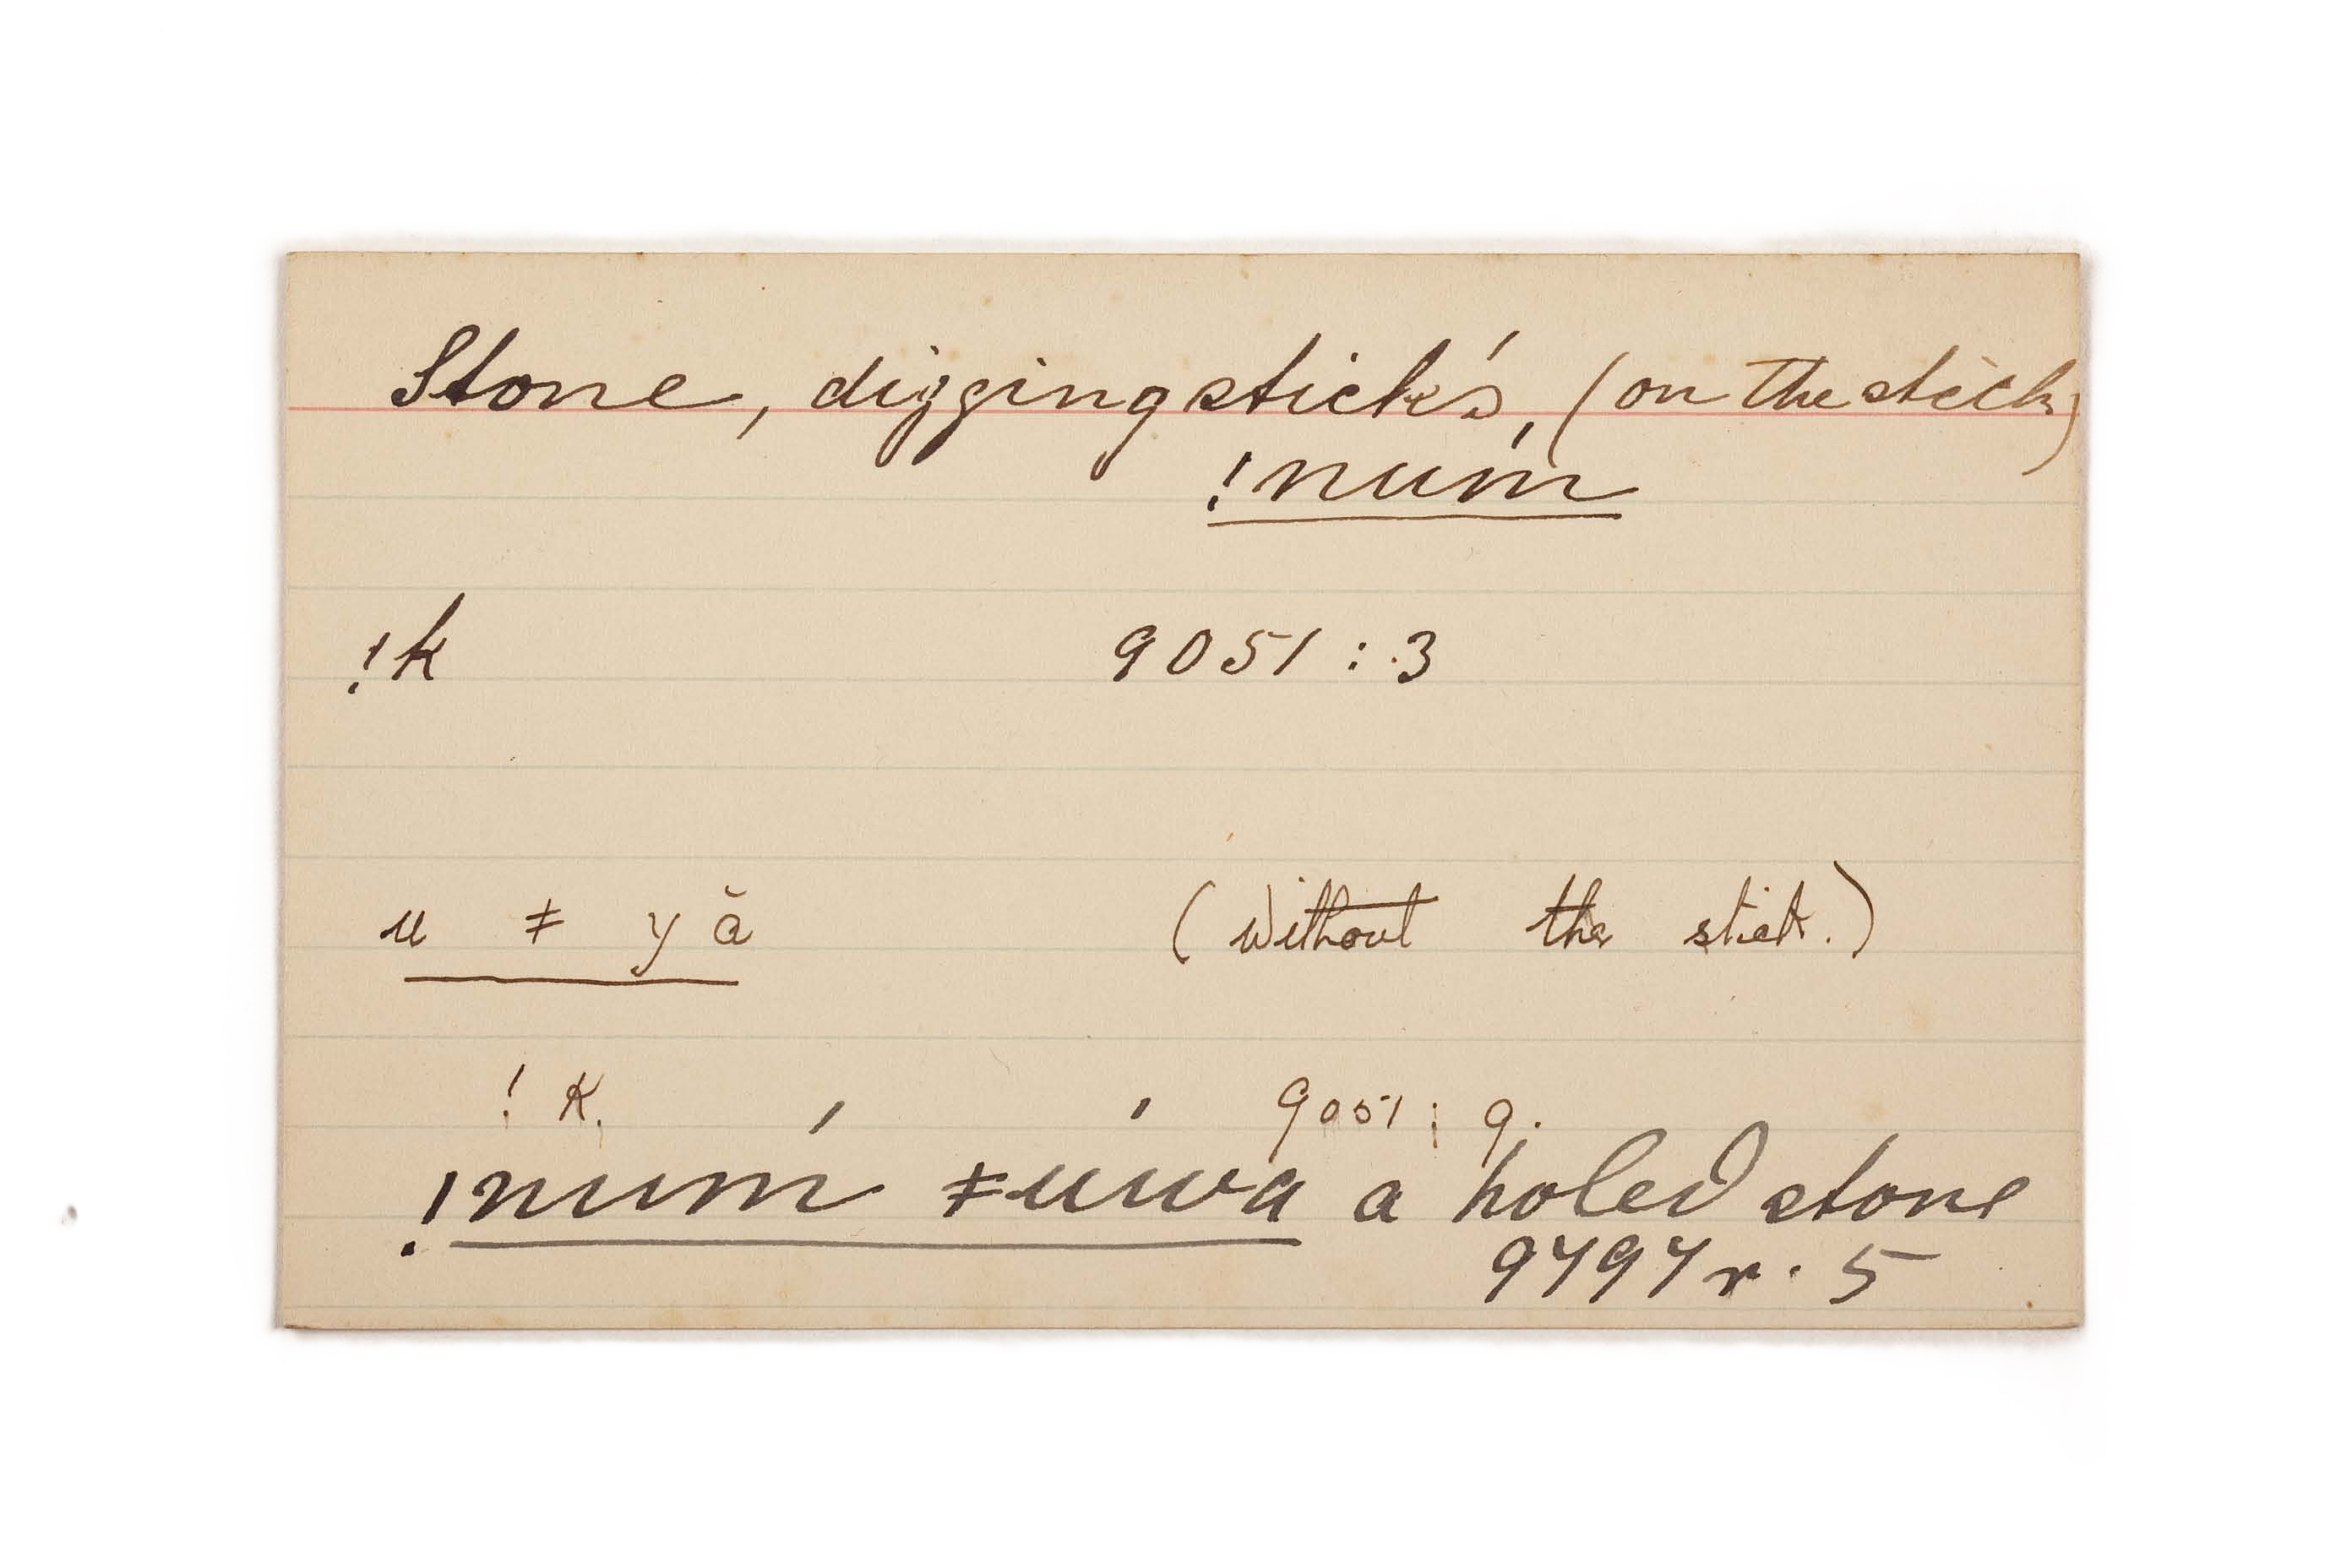 Stone, digging stick's, (on the stick)
!núm
!k 9051 : 3
u ≠ yă (without the stick.)
! K. 9051 : 9.
!núm ≠úwa a holed stone
9797 r. 5